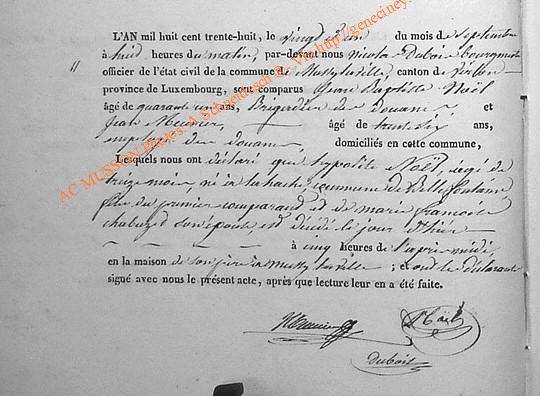 L'AN mil huit cent trente-huit, le vingt et un du mois de Septembre
à huit heures du matin, par-devant nous Nicolas Dubois bourgmestre
officier de l'état civil de la commune de Mussy la ville, canton de Virton
province de Luxembourg, sont comparus Jean Baptiste Noël
âgé de quarant un ans, Brigadier des Douanes et
Jean Meunier âgé de trente Six ans,
employé des Douanes domiciliés en cette commune,
Lesquels nous ont déclaré que hypolite Noël, âgé de
treize mois, né à commune de Villers
fils du premier comparant et de marie françoise
son épouse est décédé le jour d'hier
à cinq heures de l'après midi
en la maison de son père à Mussy la ville ; et ont les déclarants
signé avec nous le présent acte, après que lecture leur en a été faite.
Meunier Noël
Dubois
AC MUSSON Photos: A. Schneidesch via http://geneciney.